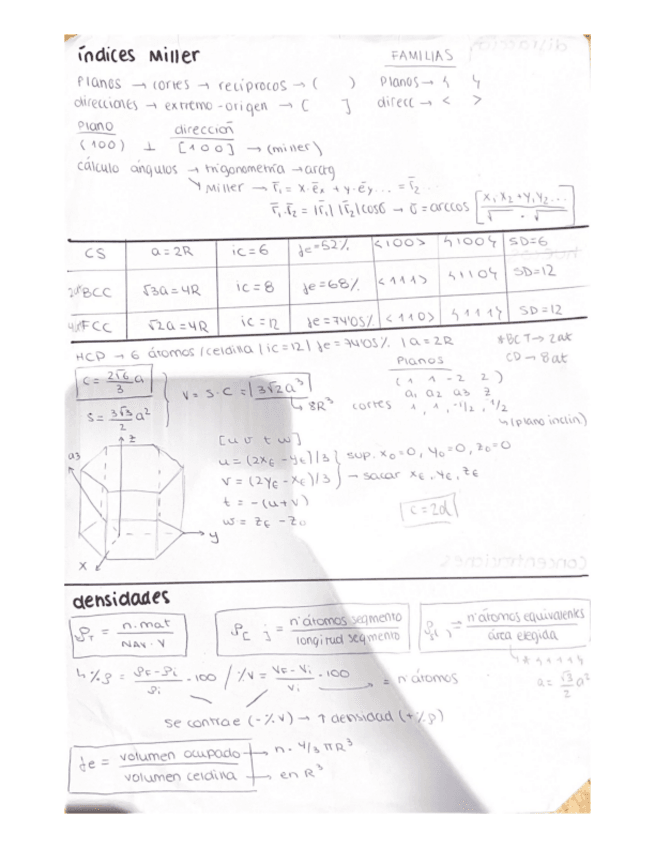 índices Miller
FAMILIAS
Planos → cortes → recíprocos → ( ) Planos → { }
direcciones → extremo-origen → [ ] direcc → < >
Plano dirección
(100) ⊥ [100] → (miller)
cálculo ángulos → trigonometría → arctg
Miller → r̄₁ = x·ēx + y·ēy... = r̄₂...
r̄₁·r̄₂ = |r̄₁| |r̄₂| cosθ → θ = arccos [x₁x₂+y₁y₂... / √ · √ ]
CS a=2R ic=6 fe=52% <100> {100} SD=6
BCC √3a=4R ic=8 fe=68% <111> {110} SD=12
FCC √2a=4R ic=12 fe=74'05% <110> {111} SD=12
HCP → 6 átomos/celdilla | ic=12 | fe=74'05% | a=2R
*BCT → 2at
CD → 8at
C = 2√6/3 a
S = 3√3/2 a²
V = S·C = 3√2a³
↳ 8R³
Planos
(1 1 -2 2)
a₁ a₂ a₃ z
cortes 1, 1, -1/2, 1/2
↳ (plano inclin.)
[u v t w]
u = (2xE - yE)/3 sup. x₀=0, y₀=0, z₀=0
v = (2yE - xE)/3 → sacar xE, yE, zE
t = -(u+v)
w = zE - z₀
c=2d
z
a3
y
x
densidades
ρT = n·mat / NAV·V
ρ[ ] = nºátomos segmento / longitud segmento
ρ( ) = nºátomos equivalentes / área elegida
↳ %ρ = ρF-ρi / ρi · 100 / %V = VF-Vi / Vi · 100 → = nºátomos
a = √3/2 a²
se contrae (-%V) → ↑ densidad (+%ρ)
fe = volumen ocupado / volumen celdilla
→ n · 4/3 πR³
→ en R³